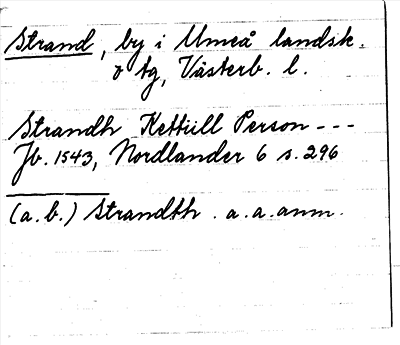 Strand, by i Umeå landsk.
o tg, Västerb. l.
Strandh Kettiill Person ---
Jb. 1543, Nordlander 6 s. 296
(a.b.) Strandth. a.a. anm.